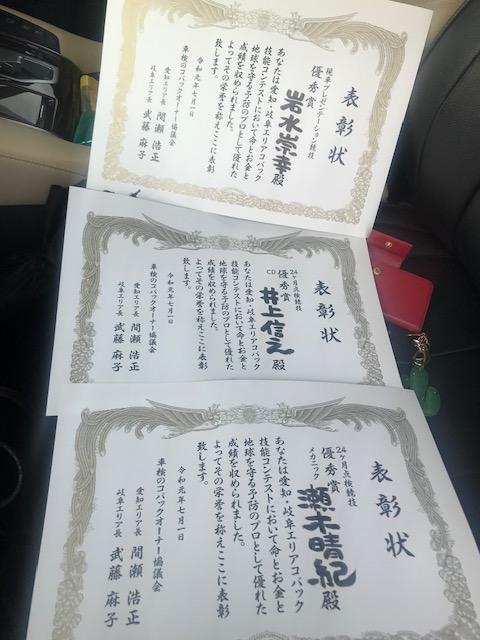 表彰状
現車プレゼンテーション競技
優秀賞
岩水崇幸殿
あなたは愛知・岐阜エリアコバック
技能コンテストにおいて命とお金と
地球を守る予防のプロとして優れた
成績を収められました。
よってその栄誉を称えここに表彰
致します。
令和元年七月一日
車検のコバックオーナー協議会
愛知エリア長 間瀬 浩正
岐阜エリア長 武藤 麻子
表彰状
24ヶ月点検競技
優秀賞
CD
井上信之殿
あなたは愛知・岐阜エリアコバック
技能コンテストにおいて命とお金と
地球を守る予防のプロとして優れた
成績を収められました。
よってその栄誉を称えここに表彰
致します。
令和元年七月一日
車検のコバックオーナー協議会
愛知エリア長 間瀬 浩正
岐阜エリア長 武藤 麻子
表彰状
24ヶ月点検競技
優秀賞
メカニック
瀬木晴紀殿
あなたは愛知・岐阜エリアコバック
技能コンテストにおいて命とお金と
地球を守る予防のプロとして優れた
成績を収められました。
よってその栄誉を称えここに表彰
致します。
令和元年七月一日
車検のコバックオーナー協議会
愛知エリア長 間瀬 浩正
岐阜エリア長 武藤 麻子